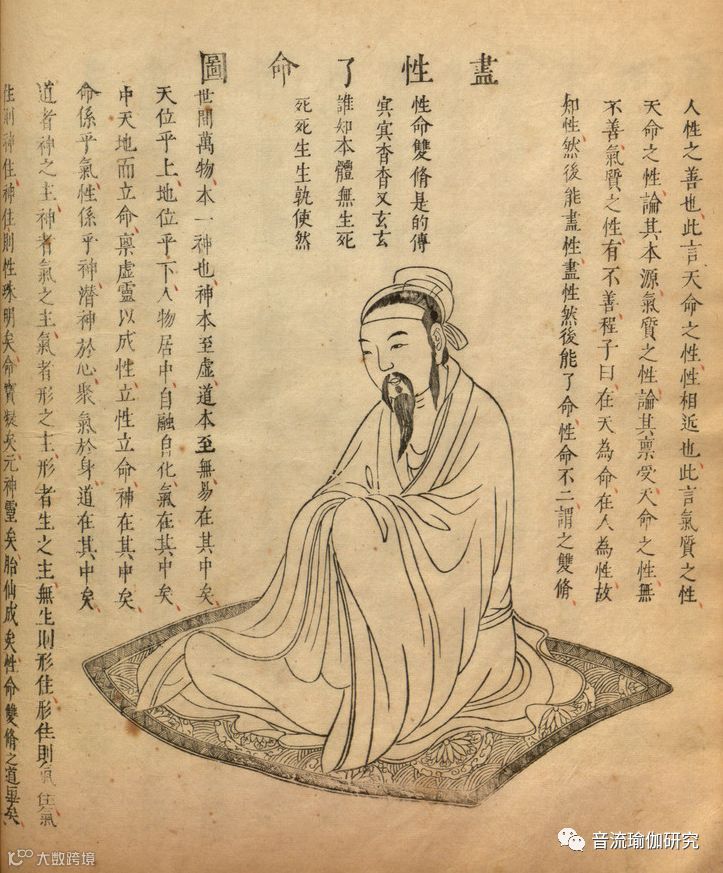 盡性了命圖
人性之善也此言天命之性性相近也此言氣質之性
天命之性論其本源氣質之性論其稟受天命之性無
不善氣質之性有不善程子曰在天為命在人為性故
知性然後能盡性盡性然後能了命性命不二謂之雙脩
性命雙脩是的傳
冥冥杳杳又玄玄
誰知本體無生死
死死生生孰使然
世間萬物本一神也神本至虛道本至無易在其中矣
天位乎上地位乎下人物居中自融自化氣在其中矣
中天地而立命稟虛靈以成性立性立命神在其中矣
命係乎氣性係乎神潛神於心聚氣於身道在其中矣
道者神之主神者氣之主氣者形之主形者生之主無生則形住形住則氣住氣
住則神住神住則性珠明矣命寶凝矣元神靈矣胎仙成矣性命雙脩之道畢矣
音流瑜伽研究
大数跨境